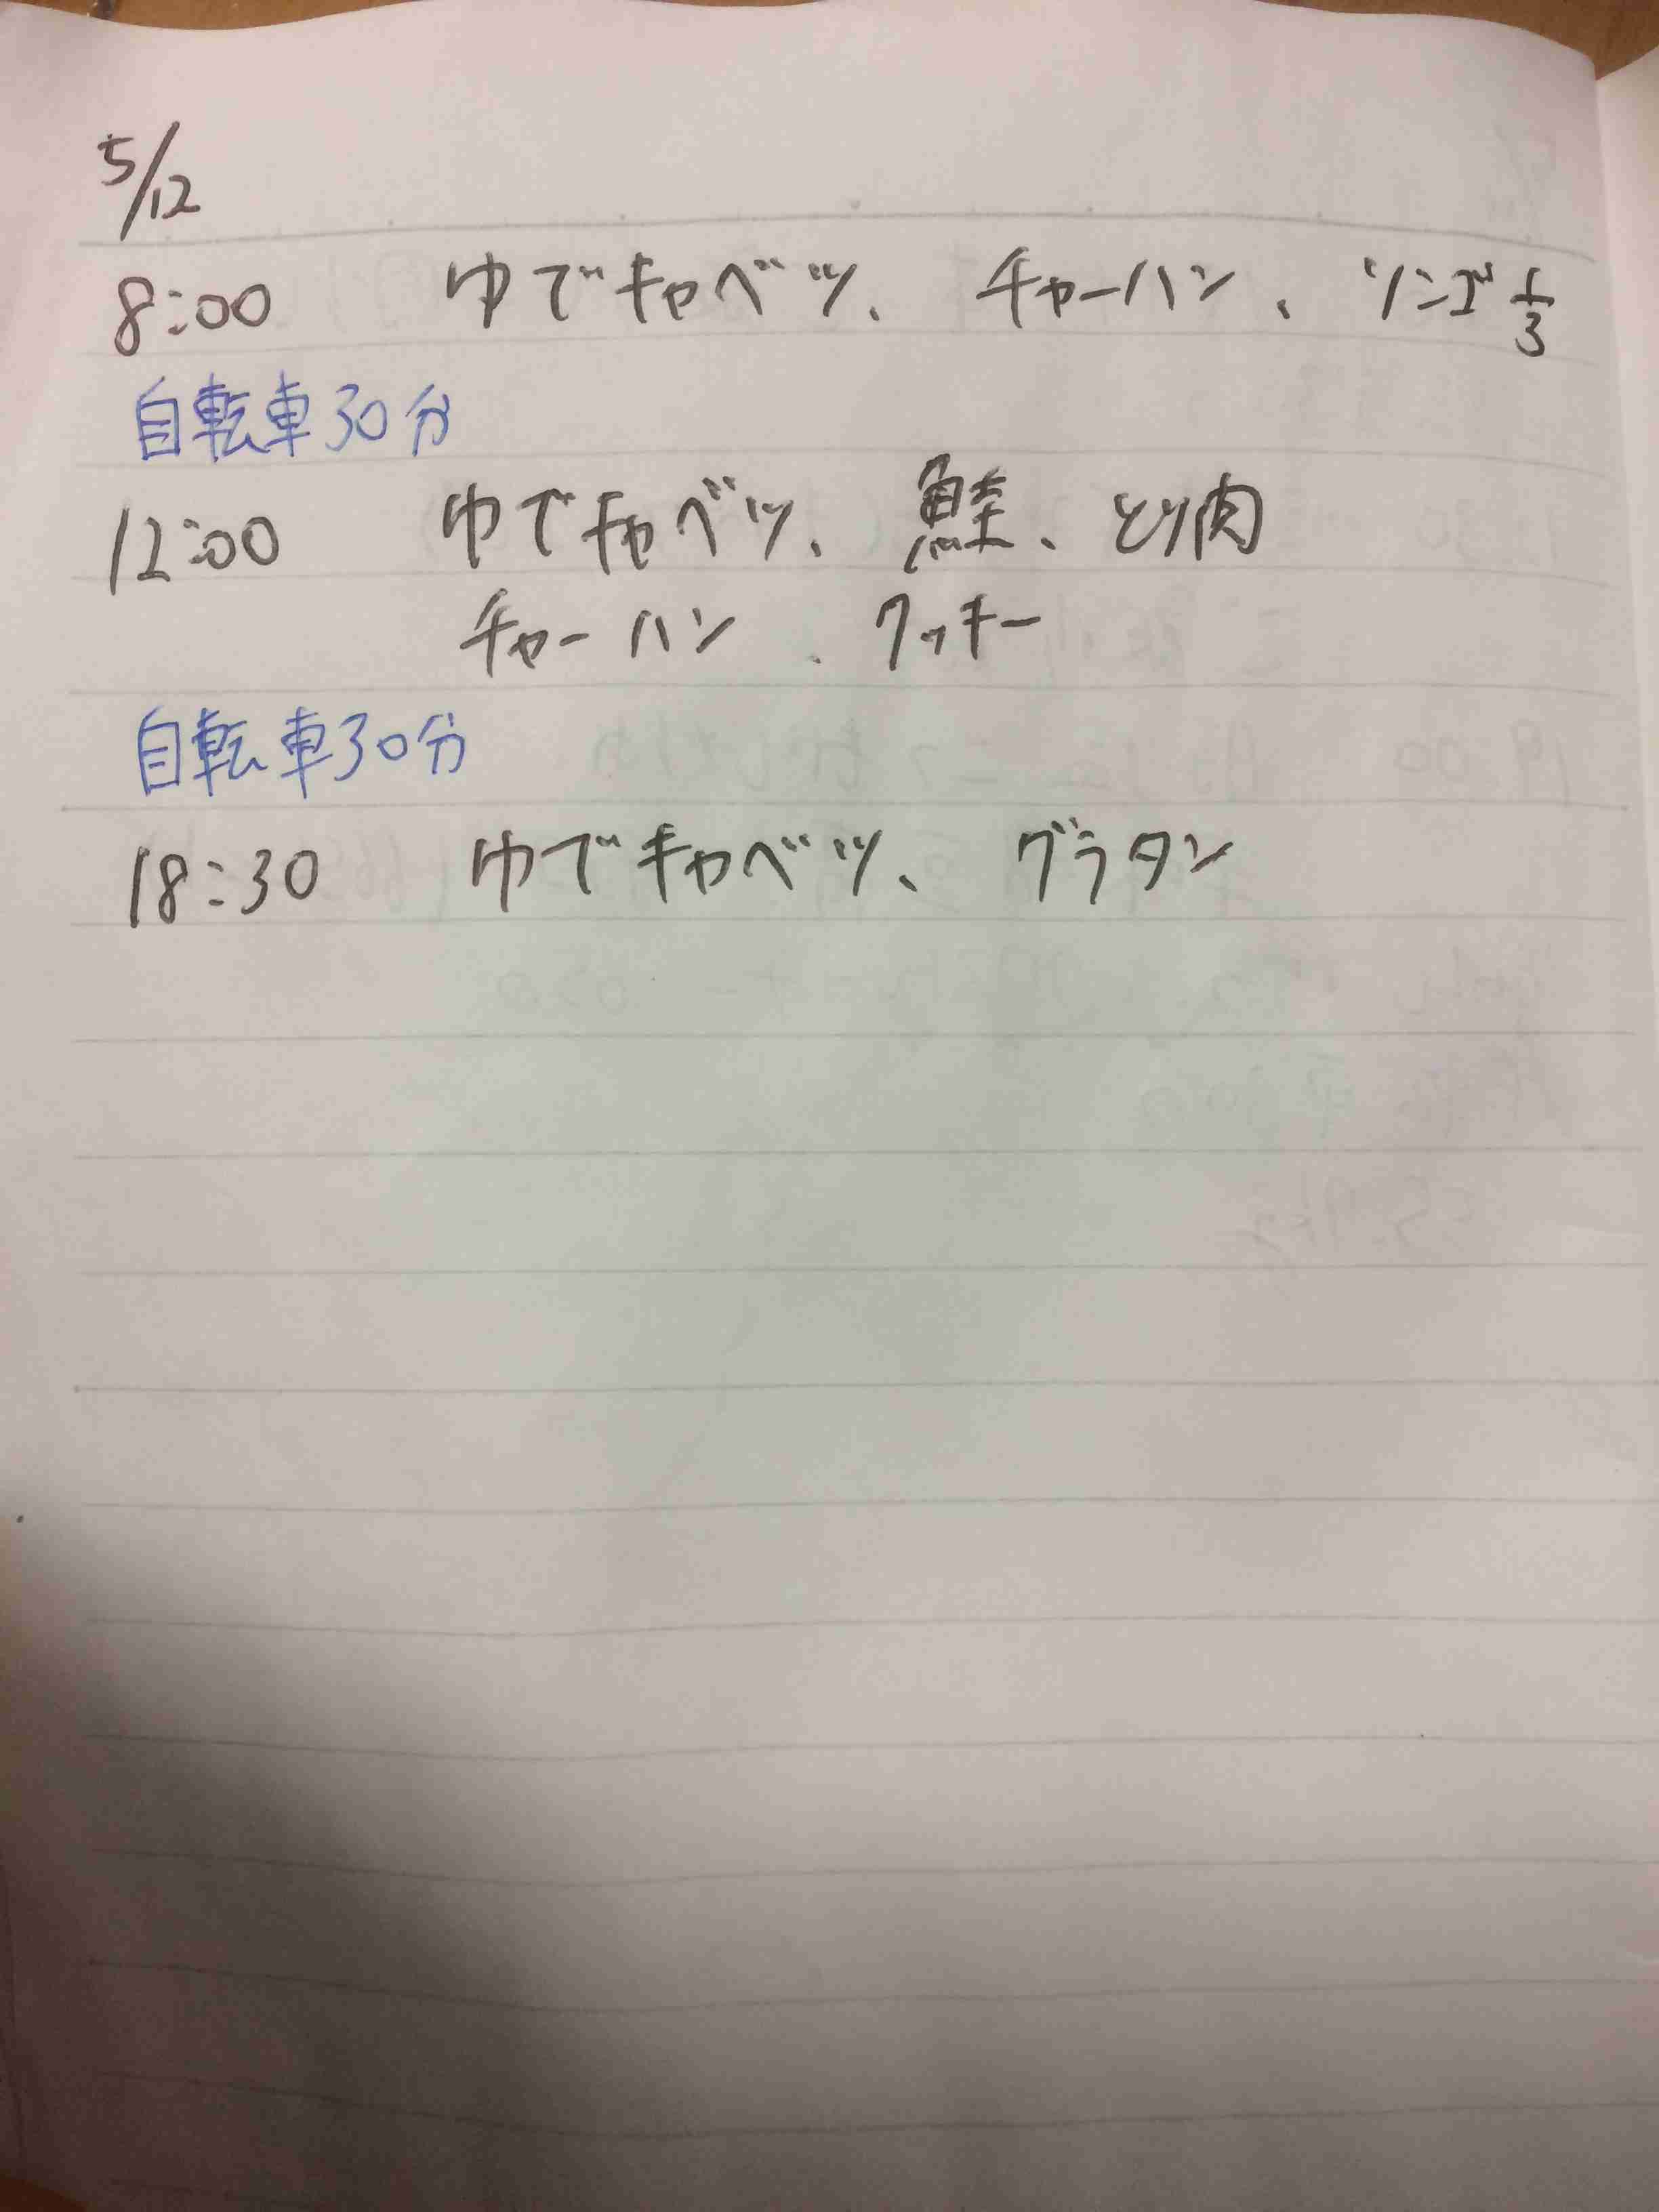 5/12
8:00 ゆでキャベツ、チャーハン、リンゴ1/3
自転車30分
12:00 ゆでキャベツ、鮭、とり肉
チャーハン、クッキー
自転車30分
18:30 ゆでキャベツ、グラタン